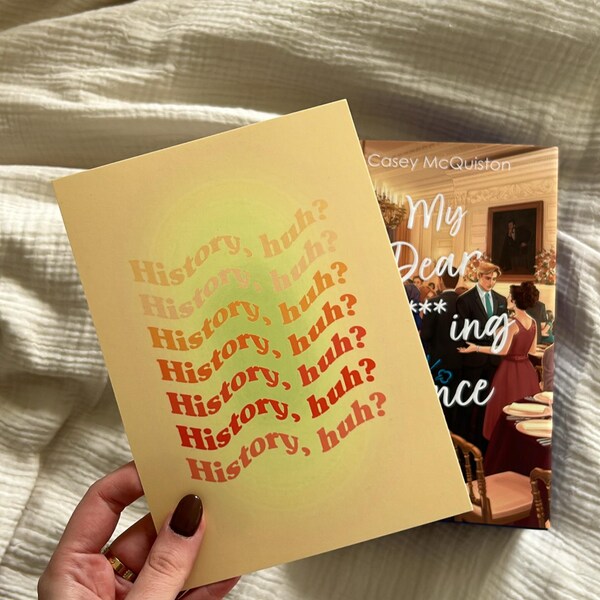 History, huh?
History, huh?
History, huh?
History, huh?
History, huh?
History, huh?
History, huh?
Casey McQuiston
My
Dear
***ing
nce